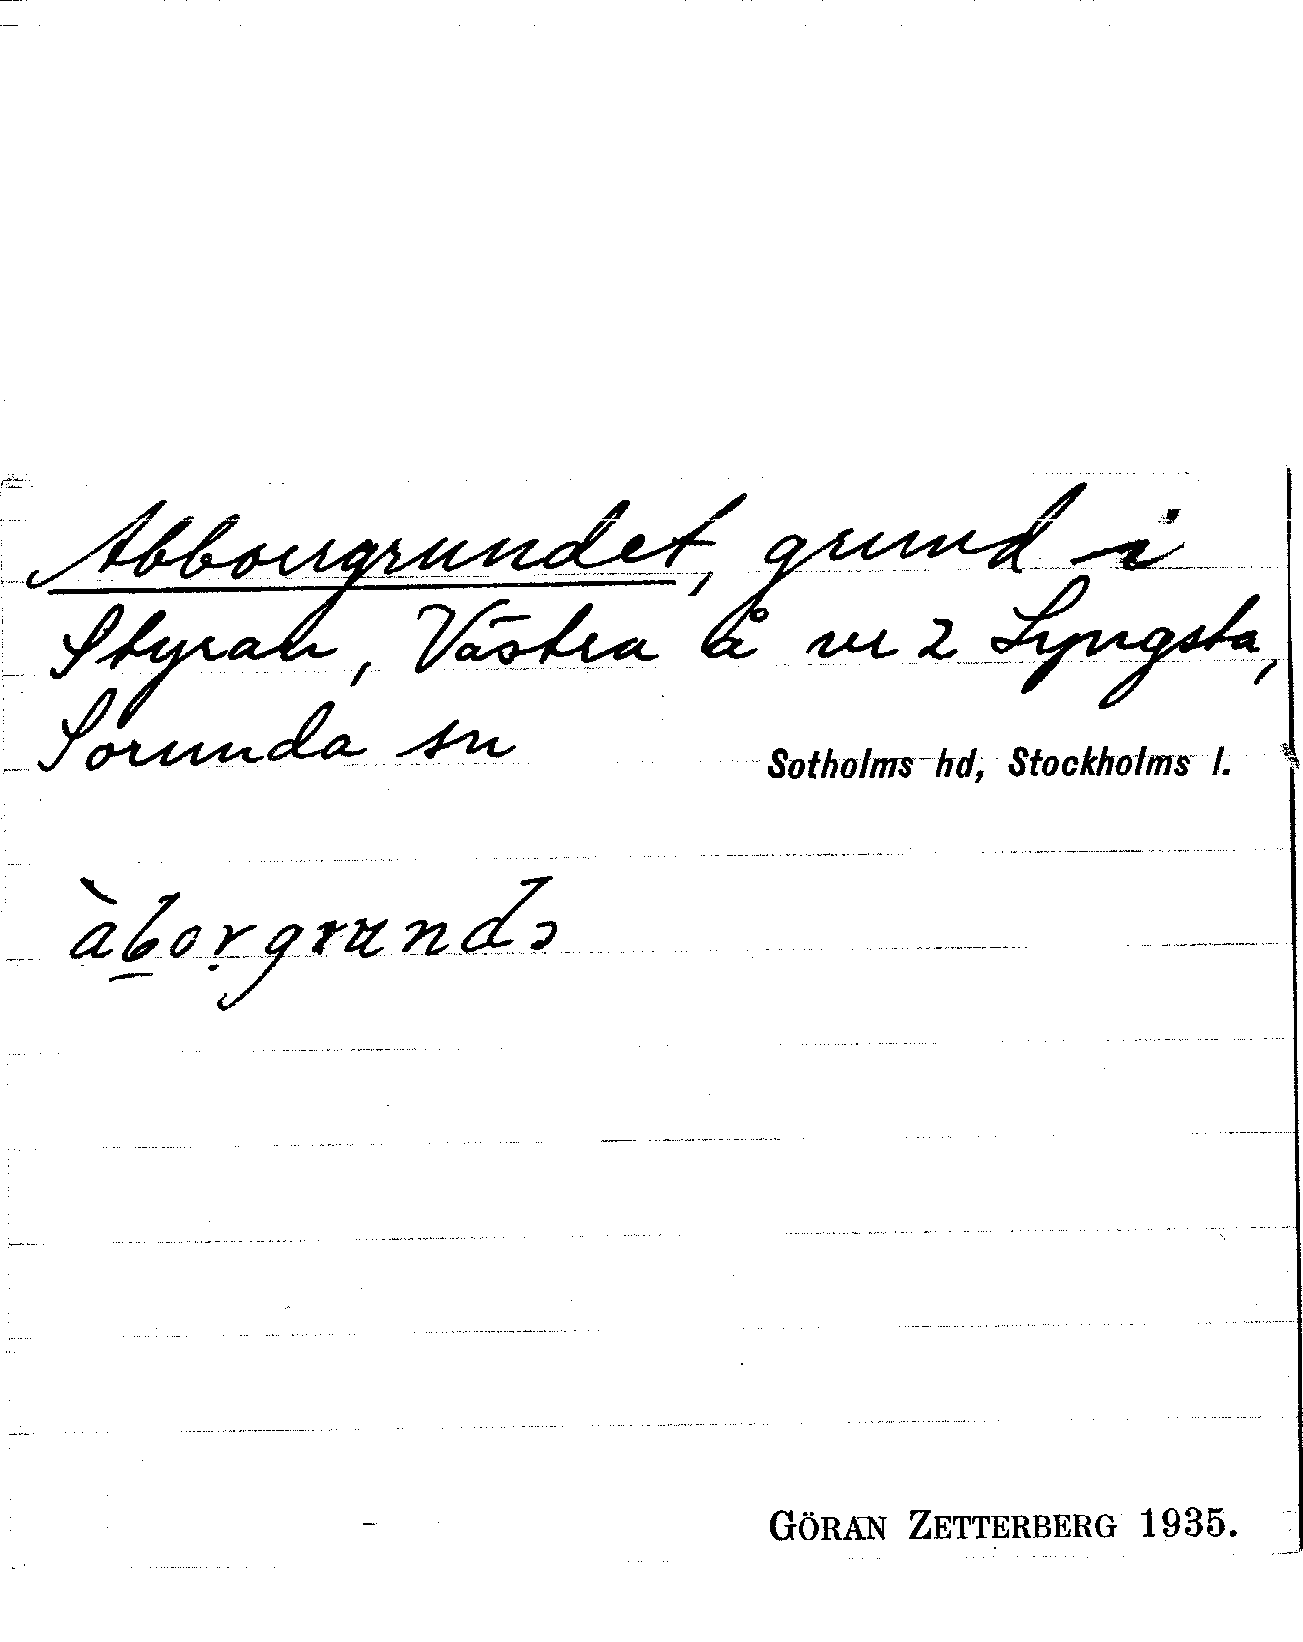 Abborrgrundet, grund i
Styran, Västra å nr 2 Lyngsta,
Sorunda sn
Sotholms hd, Stockholms l.
àb̲oṛgrundə
GÖRAN ZETTERBERG 1935.